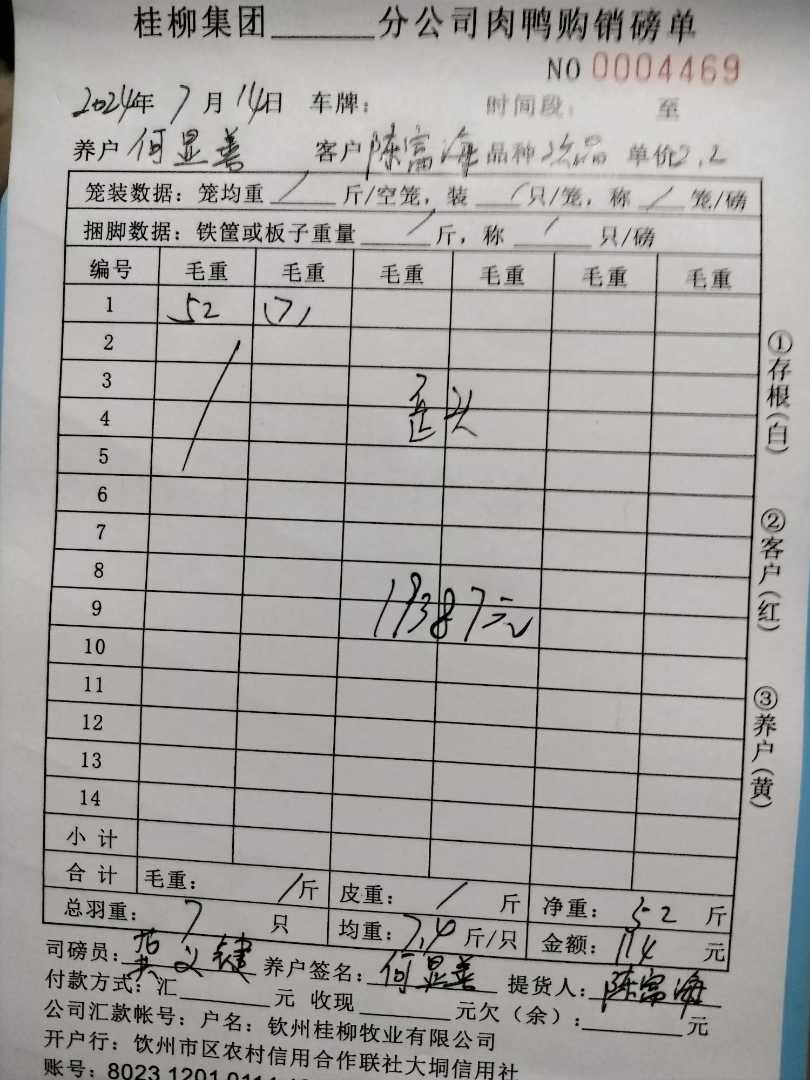 桂柳集团______分公司肉鸭购销磅单
NO 0004469
2024年 7月14日 车牌： 时间段： 至
养户 何显善 客户 陈富海 品种 次品 单价 2.2
笼装数据：笼均重 / 斤/空笼，装 / 只/笼，称 / 笼/磅
捆脚数据：铁筐或板子重量 / 斤，称 / 只/磅
编号 毛重 毛重 毛重 毛重 毛重 毛重
1 52 (7)
2
3 歪头
4
5
6
7
8
9 19387元
10
11
12
13
14
小计
合计 毛重： / 斤 皮重： / 斤 净重： 52 斤
总羽重： 7 只 均重： 7.4 斤/只 金额： 114 元
司磅员： 义键 养户签名： 何显善 提货人： 陈富海
付款方式：汇______元 收现______元欠（余）：______元
公司汇款帐号：户名：钦州桂柳牧业有限公司
开户行：钦州市区农村信用合作联社大垌信用社
账号：8023 1201 0114
①存根（白）
②客户（红）
③养户（黄）